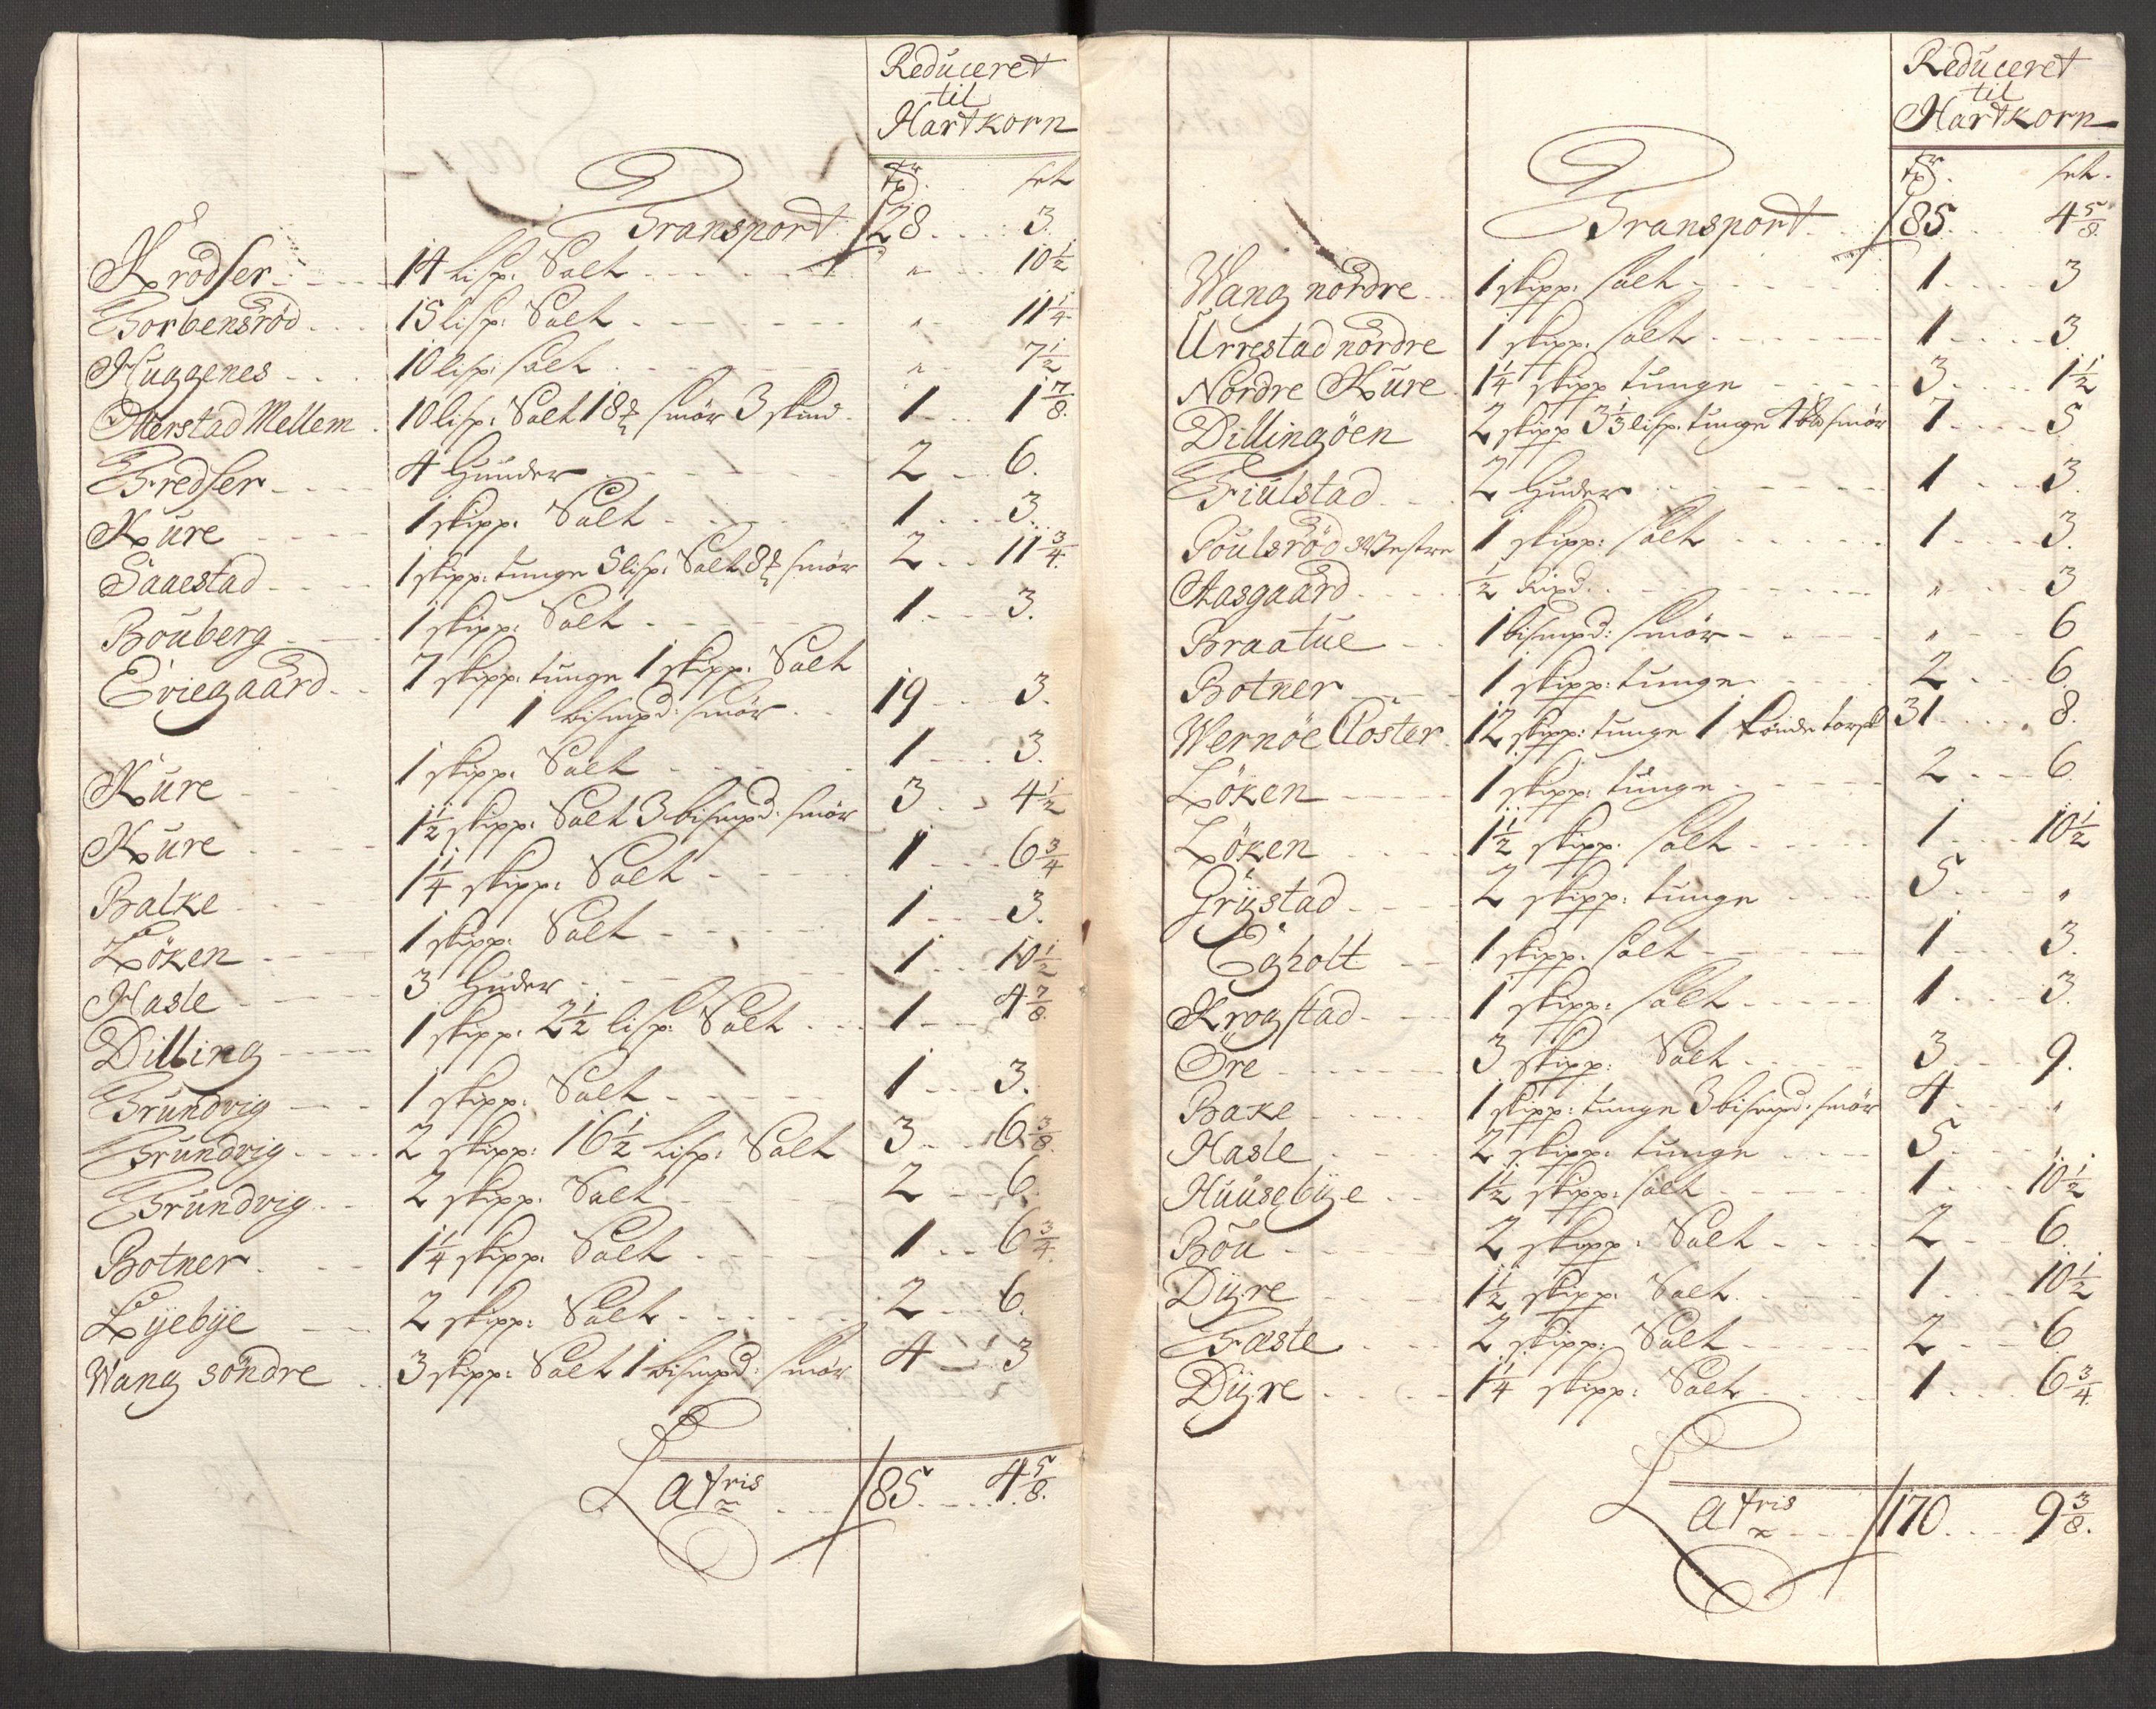 Reduceret
til
Hartkorn
tr. sch
Transport 28 3
Krodser 14 lisp. Salt " 10 1/2
Torbensröd 15 lisp: Salt " 11 1/4
Huggenes 10 lisp: salt " 7 1/2
Otterstad Mellem 10 lisp: Salt 18 smör 3 skind 1 1 7/8
Tredser 4 Hunder 2 6
Kure 1 skipp: Salt 1 3
Saaestad 1 skipp: tunge 5 lisp: Salt 8 smör 2 11 3/4
Bouberg 1 skipp: Salt 1 3
Eviegaard 7 skipp: tunge 1 skipp: Salt
1 bismpd: smör 19 3
Kure 1 skipp: Salt 1 3
Kure 1 1/2 skipp: Salt 3 bismpd: smör 3 4 1/2
Balke 1 1/4 skipp: Salt 1 6 3/4
Löken 1 skipp: Salt 1 3
Hasle 3 Huder 1 10 1/2
Dilling 1 skipp: 2 1/2 lisp: Salt 1 4 7/8
Grundvig 1 skipp: Salt 1 3
Grundvig 2 skipp: 16 1/2 Lisp: Salt 3 6 3/8
Grundvig 2 skipp: Salt 2 6
Botner 1 1/4 skipp: Salt 1 6 3/4
Lyebye 2 skipp: Salt 2 6
Wang söndre 3 skipp: Salt 1 bismpd: smör 4 3
Latris 85 4 5/8
Reduceret
til
Hartkorn
tr. sch.
Transport 85 4 5/8
Wang nordre 1 skipp: salt 1 3
Urrestad nordre 1 skipp: salt 1 3
Nordre Kure 1 1/4 skipp tunge 3 1 1/2
Dillingöen 2 skipp 3 1/3 lisp. tunge smör 7 5
Fiulstad 2 Huder 1 3
Poulsröd Vestre 1 skipp: salt 1 3
Aasgaard 1/2 " 3
Braatue 1 bismpd: smör " 6
Botner 1 skipp: tunge 2 6
Wernöe Closter 12 skipp: tunge 1 tönde torsk 31 8
Löken 1 skipp: tunge 2 6
Löken 1 1/2 skipp: salt 1 10 1/2
Grystad 2 skipp: tunge 5 "
Egholt 1 skipp: salt 1 3
Krogstad 1 skipp: salt 1 3
Öre 3 skipp: Salt 3 9
Bake 1 skipp: tunge 3 bismpd: smör 4 "
Hasle 2 skipp: tunge 5 "
Huusebye 1 1/2 skipp: salt 1 10 1/2
Böu 2 skipp: Salt 2 6
Dyre 1 1/2 skipp: Salt 1 10 1/2
Fæste 2 skipp: Salt 2 6
Dyre 1 1/4 skipp: Salt 1 6 3/4
Latris 170 9 3/8